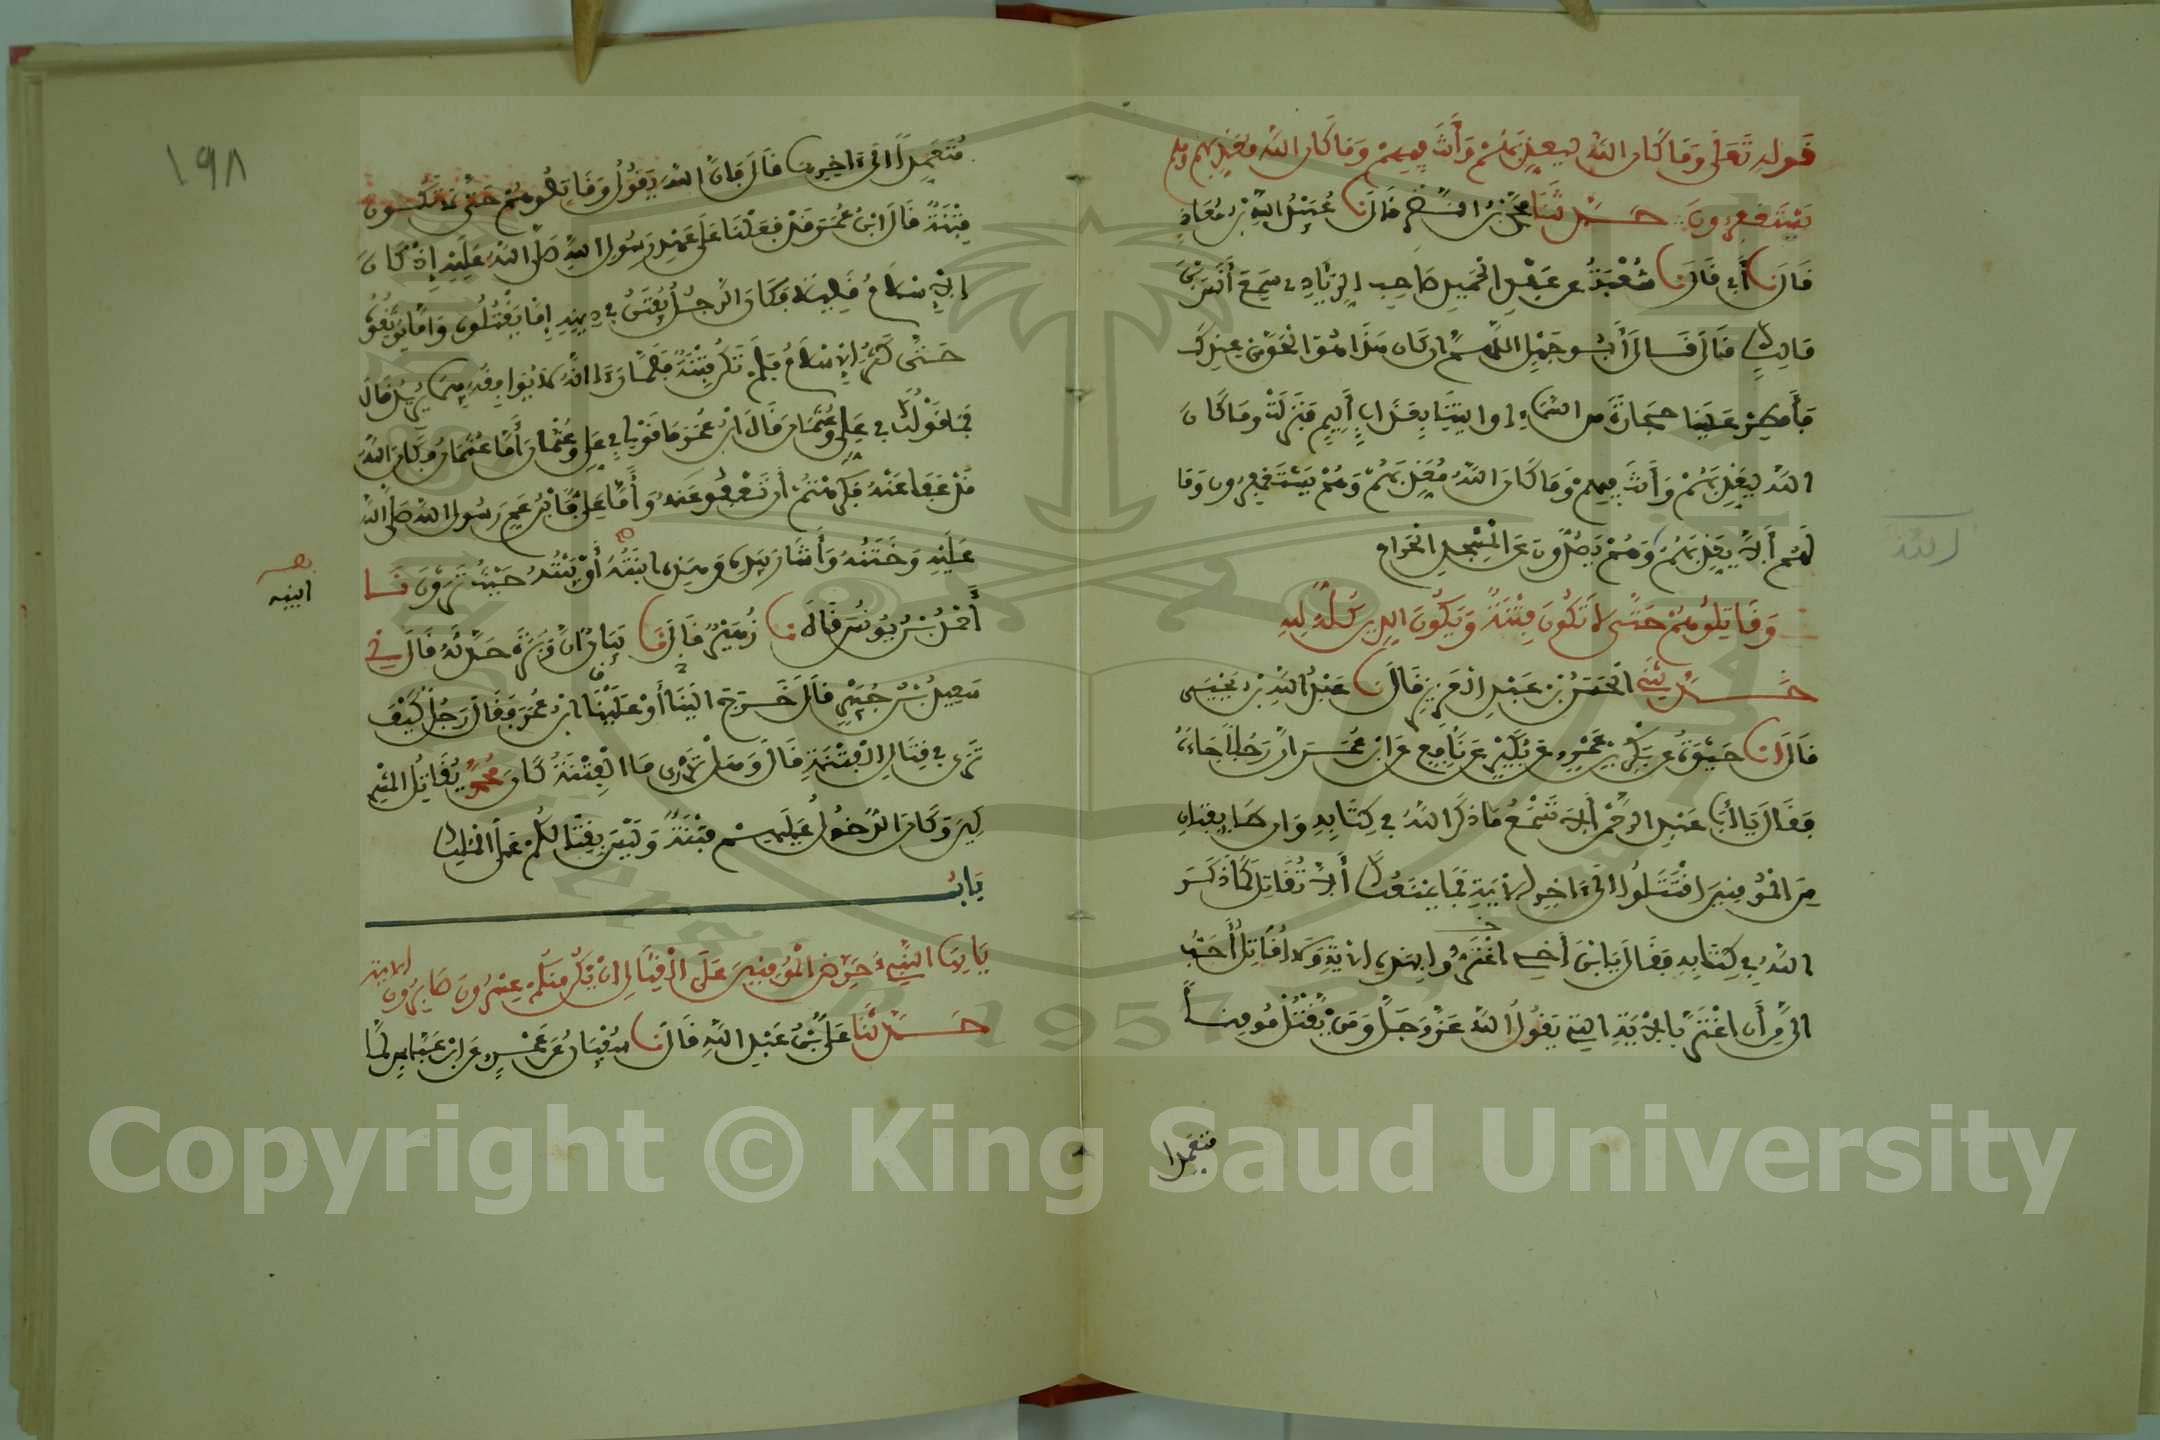 قوله تعلى وما كان الله ليعذبهم وأنت فيهم وما كان الله معذبهم وهم
يستغفرون حدثنا محمد بن النضر قال نا عبيد الله بن معاذ
قال نا أبي قال نا شعبة عن عبد الحميد صاحب الزيادي سمع أنس بن
مالك قال قال أبو جهل اللهم ان كان هذا هو الحق من عندك
فأمطر علينا حجارة من السماء او ايتنا بعذاب أليم فنزلت وما كان
الله ليعذبهم وأنت فيهم وما كان الله معذبهم وهم يستغفرون وما
لهم ألا يعذبهم وهم يصدون عن المسجد الحرام
وقاتلوهم حتى لا تكون فتنة ويكون الدين كله لله
حدثني الحسن بن عبد العزيز قال نا عبد الله بن يحيى
قال نا حيوة عن بكر بن عمرو عن بكير عن نافع عن ابن عمر ان رجلا جاءه
فقال يا أبا عبد الرحمن ألا تسمع ما ذكر الله في كتابه وان طائفتان
من المومنين اقتتلوا الى ءاخر الاية فما يمنعك ألا تقاتل كما ذكر
الله في كتابه فقال يا ابن أخي اغتر بهذه الاية ولا أقاتل أحب
الى من أن اغتر بالاية التي يقول الله عز وجل ومن يقتل مومنا
متعمدا
متعمدا الى ءاخرها قال فان الله يقول وقاتلوهم حتى لا تكون
فتنة قال ابن عمر قد فعلنا على عهد رسول الله صلى الله عليه إذ كان
الاسلام قليلا فكان الرجل يفتن في دينه إما يقتلون واما يوثقوه
حتى كثر الاسلام فلم تكن فتنة فلما رءا انه لا يوافقه فيما يريد قال
فما قولك في علي وعثمان قال ابن عمر ما قولي في علي وعثمان أما عثمان فكان الله
قد عفا عنه فكرهتم أن تعفوا عنه وأما علي فابن عم رسول الله صلى الله
عليه وختنه وأشار بيده وهذه ابنته أو بنته حيث ترون نا
أحمد بن يونس قال نا زهير قال نا بيان أن وبرة حدثه قال ني
سعيد بن جبير قال خرج الينا أو علينا ابن عمر فقال رجل كيف
ترى في قتال الفتنة قال وهل تدري ما الفتنة كان محمد يقاتل المشر
كين وكان الدخول عليهم فتنة وليس بقتالكم على الملك
باب
يا أيها النبيء حرض المومنين على القتال ان يكن منكم عشرون صابرون الاية
حدثنا علي بن عبد الله قال نا سفيان عن عمرو عن ابن عباس لما
ابنيه
١٩٨